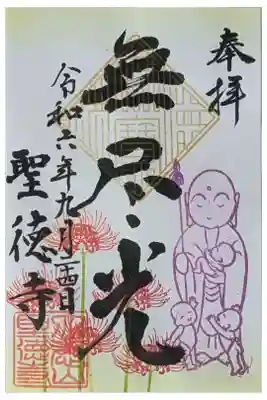 奉拝
無尽光
令和六年九月 日
聖徳寺